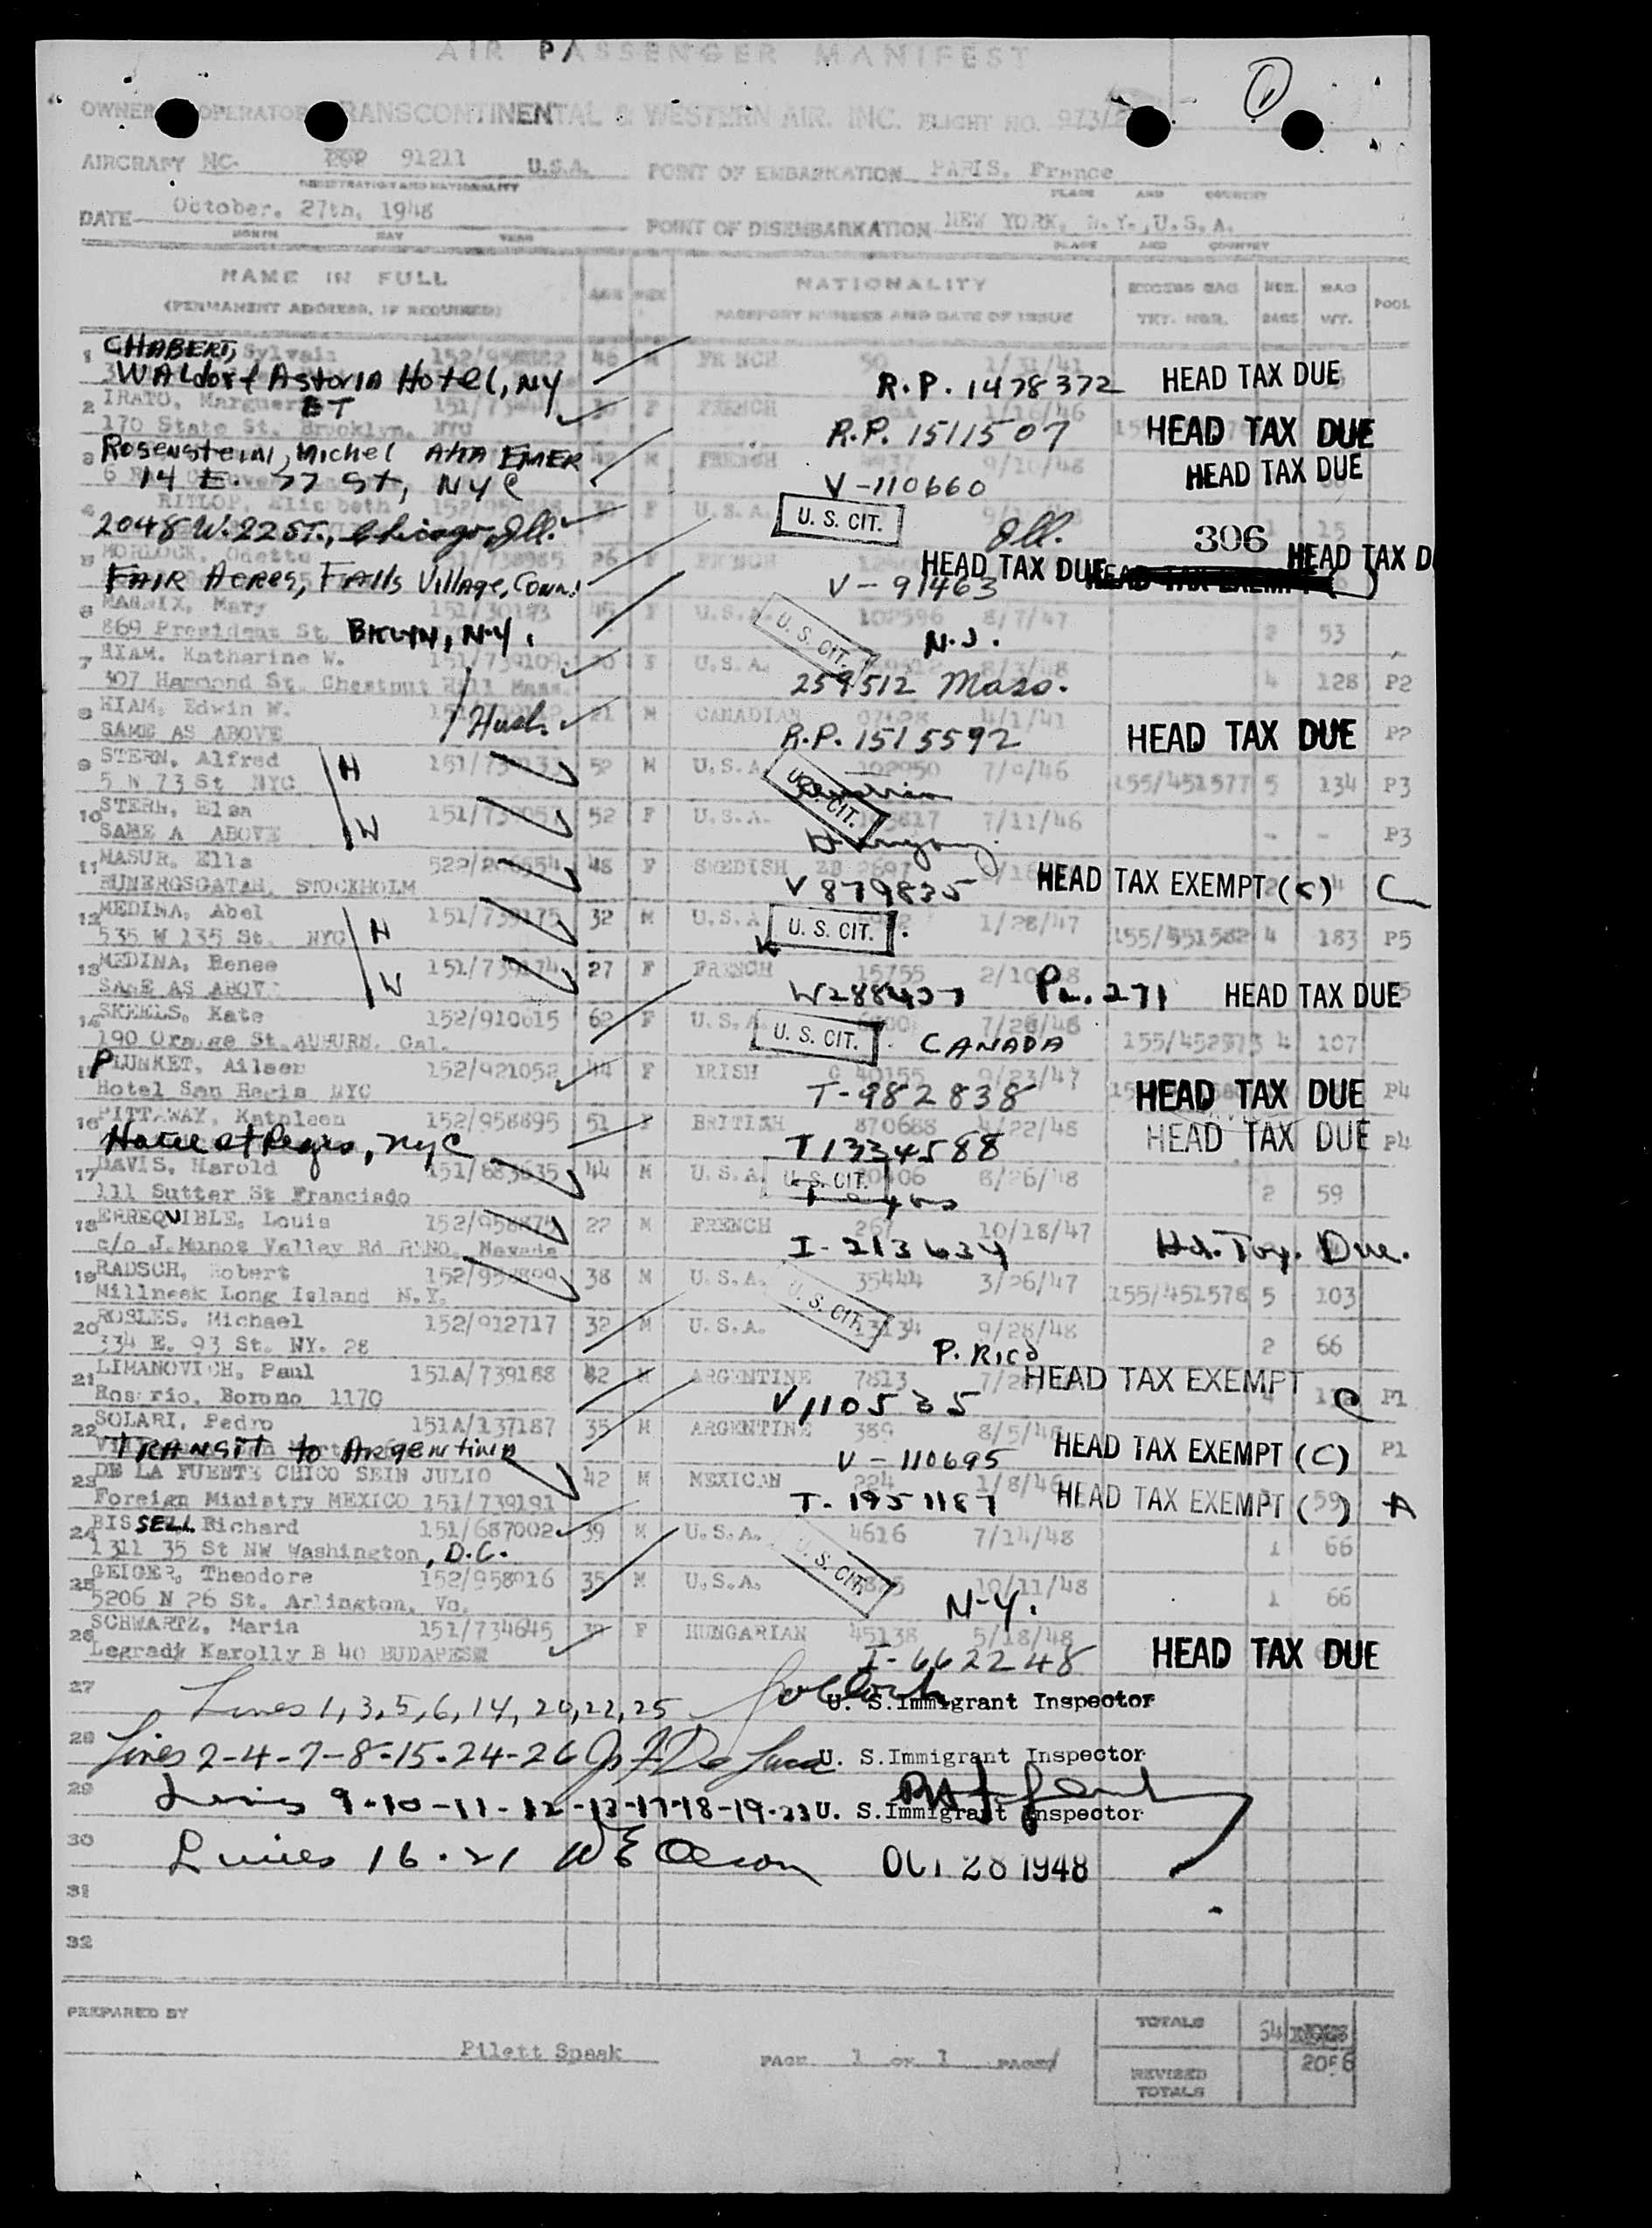 AIR PASSENGER MANIFEST
OWNER OPERATOR TRANSCONTINENTAL & WESTERN AIR, INC. FLIGHT NO. 973/
AIRCRAFT NC- 91211 U.S.A. POINT OF EMBARKATION PARIS, France
REGISTRATION AND NATIONALITY PLACE AND COUNTRY
DATE October, 27th, 1948 POINT OF DISEMBARKATION NEW YORK, N.Y.,U.S.A.
MONTH DAY YEAR PLACE AND COUNTRY
NAME IN FULL AGE SEX NATIONALITY EXCESS BAG NBR. BAG POOL
(PERMANENT ADDRESS, IF REQUIRED) PASSPORT NUMBER AND DATE OF ISSUE TKT. NBR. BAGS WT.
1 CHABERT, Sylvain 46 M FRENCH 50 1/31/41
WALdorf Astoria Hotel, NY R.P. 1478372 HEAD TAX DUE
2 IRATO, Marguer ET F FRENCH 1/16/46
170 State St. Brooklyn. NYC R.P. 1511507 HEAD TAX DUE
3 Rosenstein, Michel AKA EMER 42 M FRENCH 4937 9/10/48 HEAD TAX DUE
14 E. 77 St, NYC V-110660
4 RITLOP, Elizabeth F U.S.A. U. S. CIT.
2048 W. 22 ST., Chicago, Ill. Ill. 306 1 15
5 MORLOCK, Odette 151/738985 26 F FRENCH HEAD TAX DUE HEAD TAX D
FAIR Acres, FAlls Village, Conn. V-91463
6 MANNIX, Mary 151/30193 45 F U.S.A. 102596 8/7/47
869 President St BKLYN, N.Y. U. S. CIT. N.J. 2 53
7 HIAM, Katharine W. 151/739109 30 F U.S.A. 8/3/48
307 Hammond St. Chestnut Hill Mass. 259512 Mass. 4 128 P2
8 HIAM, Edwin W. Husb. 21 M CANADIAN 4/1/41
SAME AS ABOVE R.P. 1515592 HEAD TAX DUE P2
9 STERN, Alfred H 52 M U.S.A. 102950 7/9/46
5 W 73 St NYC U. S. CIT. 155/451577 5 134 P3
10 STERN, Elsa W 52 F U.S.A. 7/11/46
SAME A ABOVE Hungary - - P3
11 MASUR, Ella 522/206554 48 F SWEDISH ZB 2697
STOCKHOLM V 879835 HEAD TAX EXEMPT (C) C
12 MEDINA, Abel H 151/739175 32 M U.S.A 1/28/47
535 W 135 St. NYC U. S. CIT. 155/451582 4 183 P5
13 MEDINA, Renee W 151/739174 27 F FRENCH 15755
SAME AS ABOVE W288437 Pa. 271 HEAD TAX DUE
14 SKEELS, Kate 152/910615 62 F U.S.A. 7/26/48
190 Orange St. AUBURN. Cal. U. S. CIT. CANADA 4 107
15 PLUNKET, Aileen 152/921052 44 F IRISH C 40155 9/23/47
Hotel San Regis NYC T-982838 HEAD TAX DUE P4
16 PITTAWAY, Kathleen 152/958895 51 F BRITISH 870688 4/22/48
Hotel St Regis, NYC T1334588 HEAD TAX DUE P4
17 DAVIS, Harold 151/683635 44 M U.S.A. U. S. CIT. 8/26/48
111 Sutter St Francisdo Texas 2 59
18 ERREQUIBLE, Louis 152/958875 22 M FRENCH 267 10/18/47
c/o J. Munos Valley Rd RENO, Nevada I-213634 Hd. Tax. Due.
19 RADSCH, Robert 38 M U.S.A. 35444 3/26/47
Millneck Long Island N.Y. U. S. CIT. 155/451578 5 103
20 ROSLES, Michael 152/912717 32 M U.S.A. 13134 9/28/48
334 E. 93 St. NY. 28 P. Rico 2 66
21 LIMANOVICH, Paul 151A/739188 42 M ARGENTINE 7813 HEAD TAX EXEMPT
Rosario, Borono 1170 V110535 C P1
22 SOLARI, Pedro 151A/137187 35 M ARGENTINE 389
TRANSIT to Argentina V-110695 HEAD TAX EXEMPT (C) P1
23 DE LA FUENTE CHICO SEIN JULIO 42 M MEXICAN 224 1/8/46
Foreign Ministry MEXICO 151/739191 T-1951187 HEAD TAX EXEMPT ( ) 59 A
24 BISSELL Richard 151/687002 39 M U.S.A. 4616 7/14/48
1311 35 St NW Washington, D.C. U. S. CIT. 1 66
25 GEIGER, Theodore 152/958916 35 M U.S.A. 10/11/48
5206 N 26 St. Arlington, Va. N-Y. 1 66
26 SCHWARTZ, Maria 151/734645 39 F HUNGARIAN 45138 5/18/48
Legrady Karolly B 40 BUDAPEST I-662248 HEAD TAX DUE
27 Lines 1, 3, 5, 6, 14, 20, 22, 25 U. S. Immigrant Inspector
28 Lines 2-4-7-8-15-24-26 U. S. Immigrant Inspector
29 Lines 9-10-11-12-13-17-18-19-23 U. S. Immigrant Inspector
30 Lines 16-21 W E Olson OCT 28 1948
31
32
PREPARED BY Pilett Spaak PAGE 1 OF 1 PAGES
TOTALS 54
REVISED TOTALS 2056